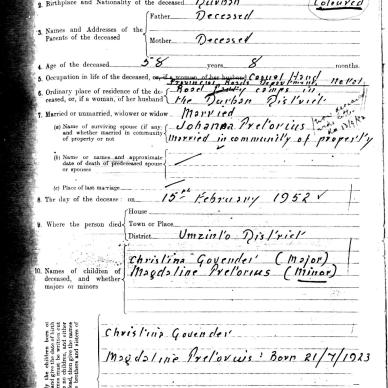 2. Birthplace and Nationality of the deceased Durban (Coloured)
3. Names and Addresses of the Parents of the deceased
Father Deceased
Mother Deceased
4. Age of the deceased 58 years 8 months.
5. Occupation in life of the deceased, or, if a woman, of her husband Casual Hand
Provincial Roads Department, Natal
6. Ordinary place of residence of the deceased, or, if a woman, of her husband Road camps in
the Durban District
7. Married or unmarried, widower or widow Married
(a) Name of surviving spouse (if any) and whether married in community of property or not
Johanna Pretorius
Married in community of property
(b) Name or names and approximate date of death of predeceased spouse or spouses
(c) Place of last marriage
8. The day of the decease: on 15th February 1952
9. Where the person died
House
Town or Place
District Umzinto District
10. Names of children of deceased, and whether majors or minors
Christina Govender (Major)
Magdaline Pretorius (Minor)
Christina Govender
Magdaline Pretorius: Born 21/7/1923